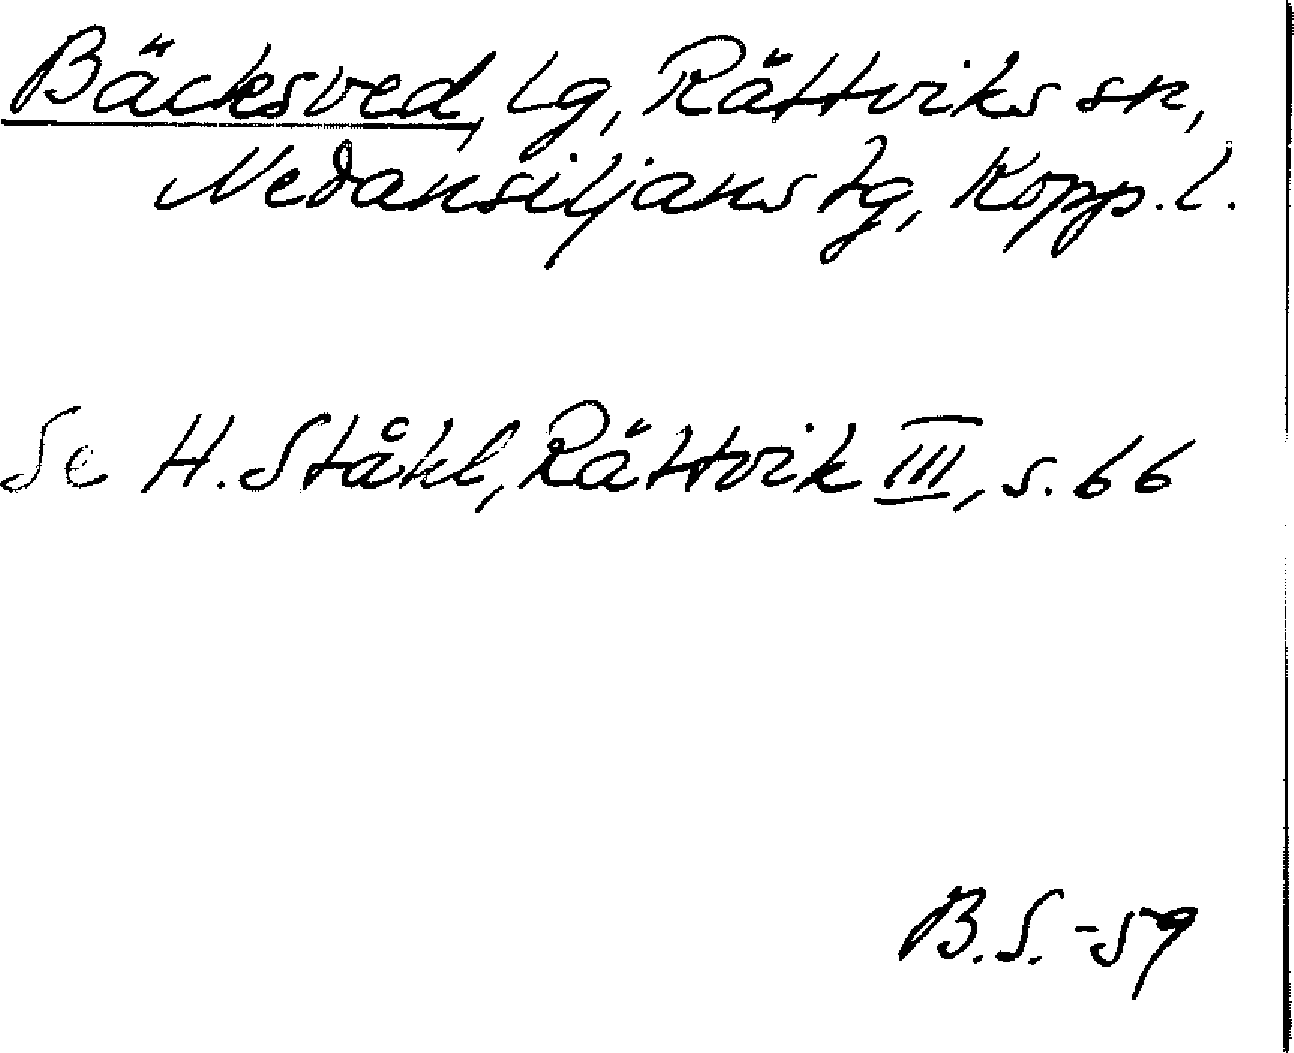 Bäcksved, lg, Rättviks sn,
Nedansiljans tg, Kopp. l.
Se H. Ståhl, Rättvik III, s. 66
B.S. -59